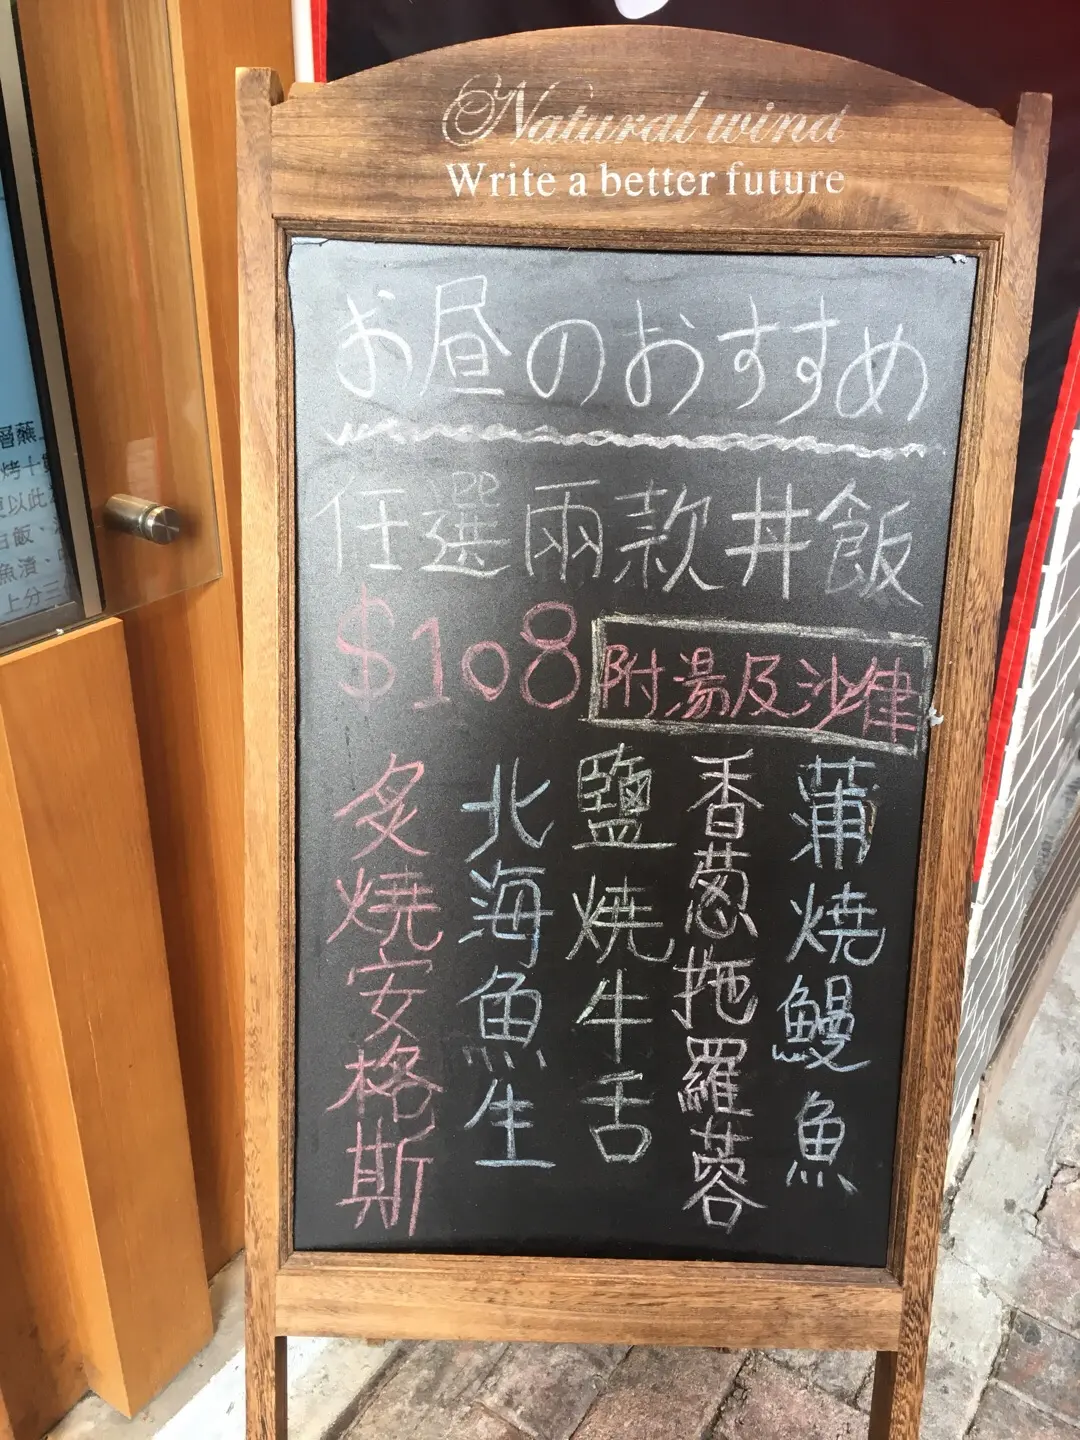 Natural wind
Write a better future
お昼のおすすめ
任選兩款丼飯
$108
附湯及沙律
蒲燒鰻魚
香蔥拖羅蓉
鹽燒牛舌
北海魚生
炙燒安格斯
層蕪
烤十
以此
白飯、
魚漬、
上分三